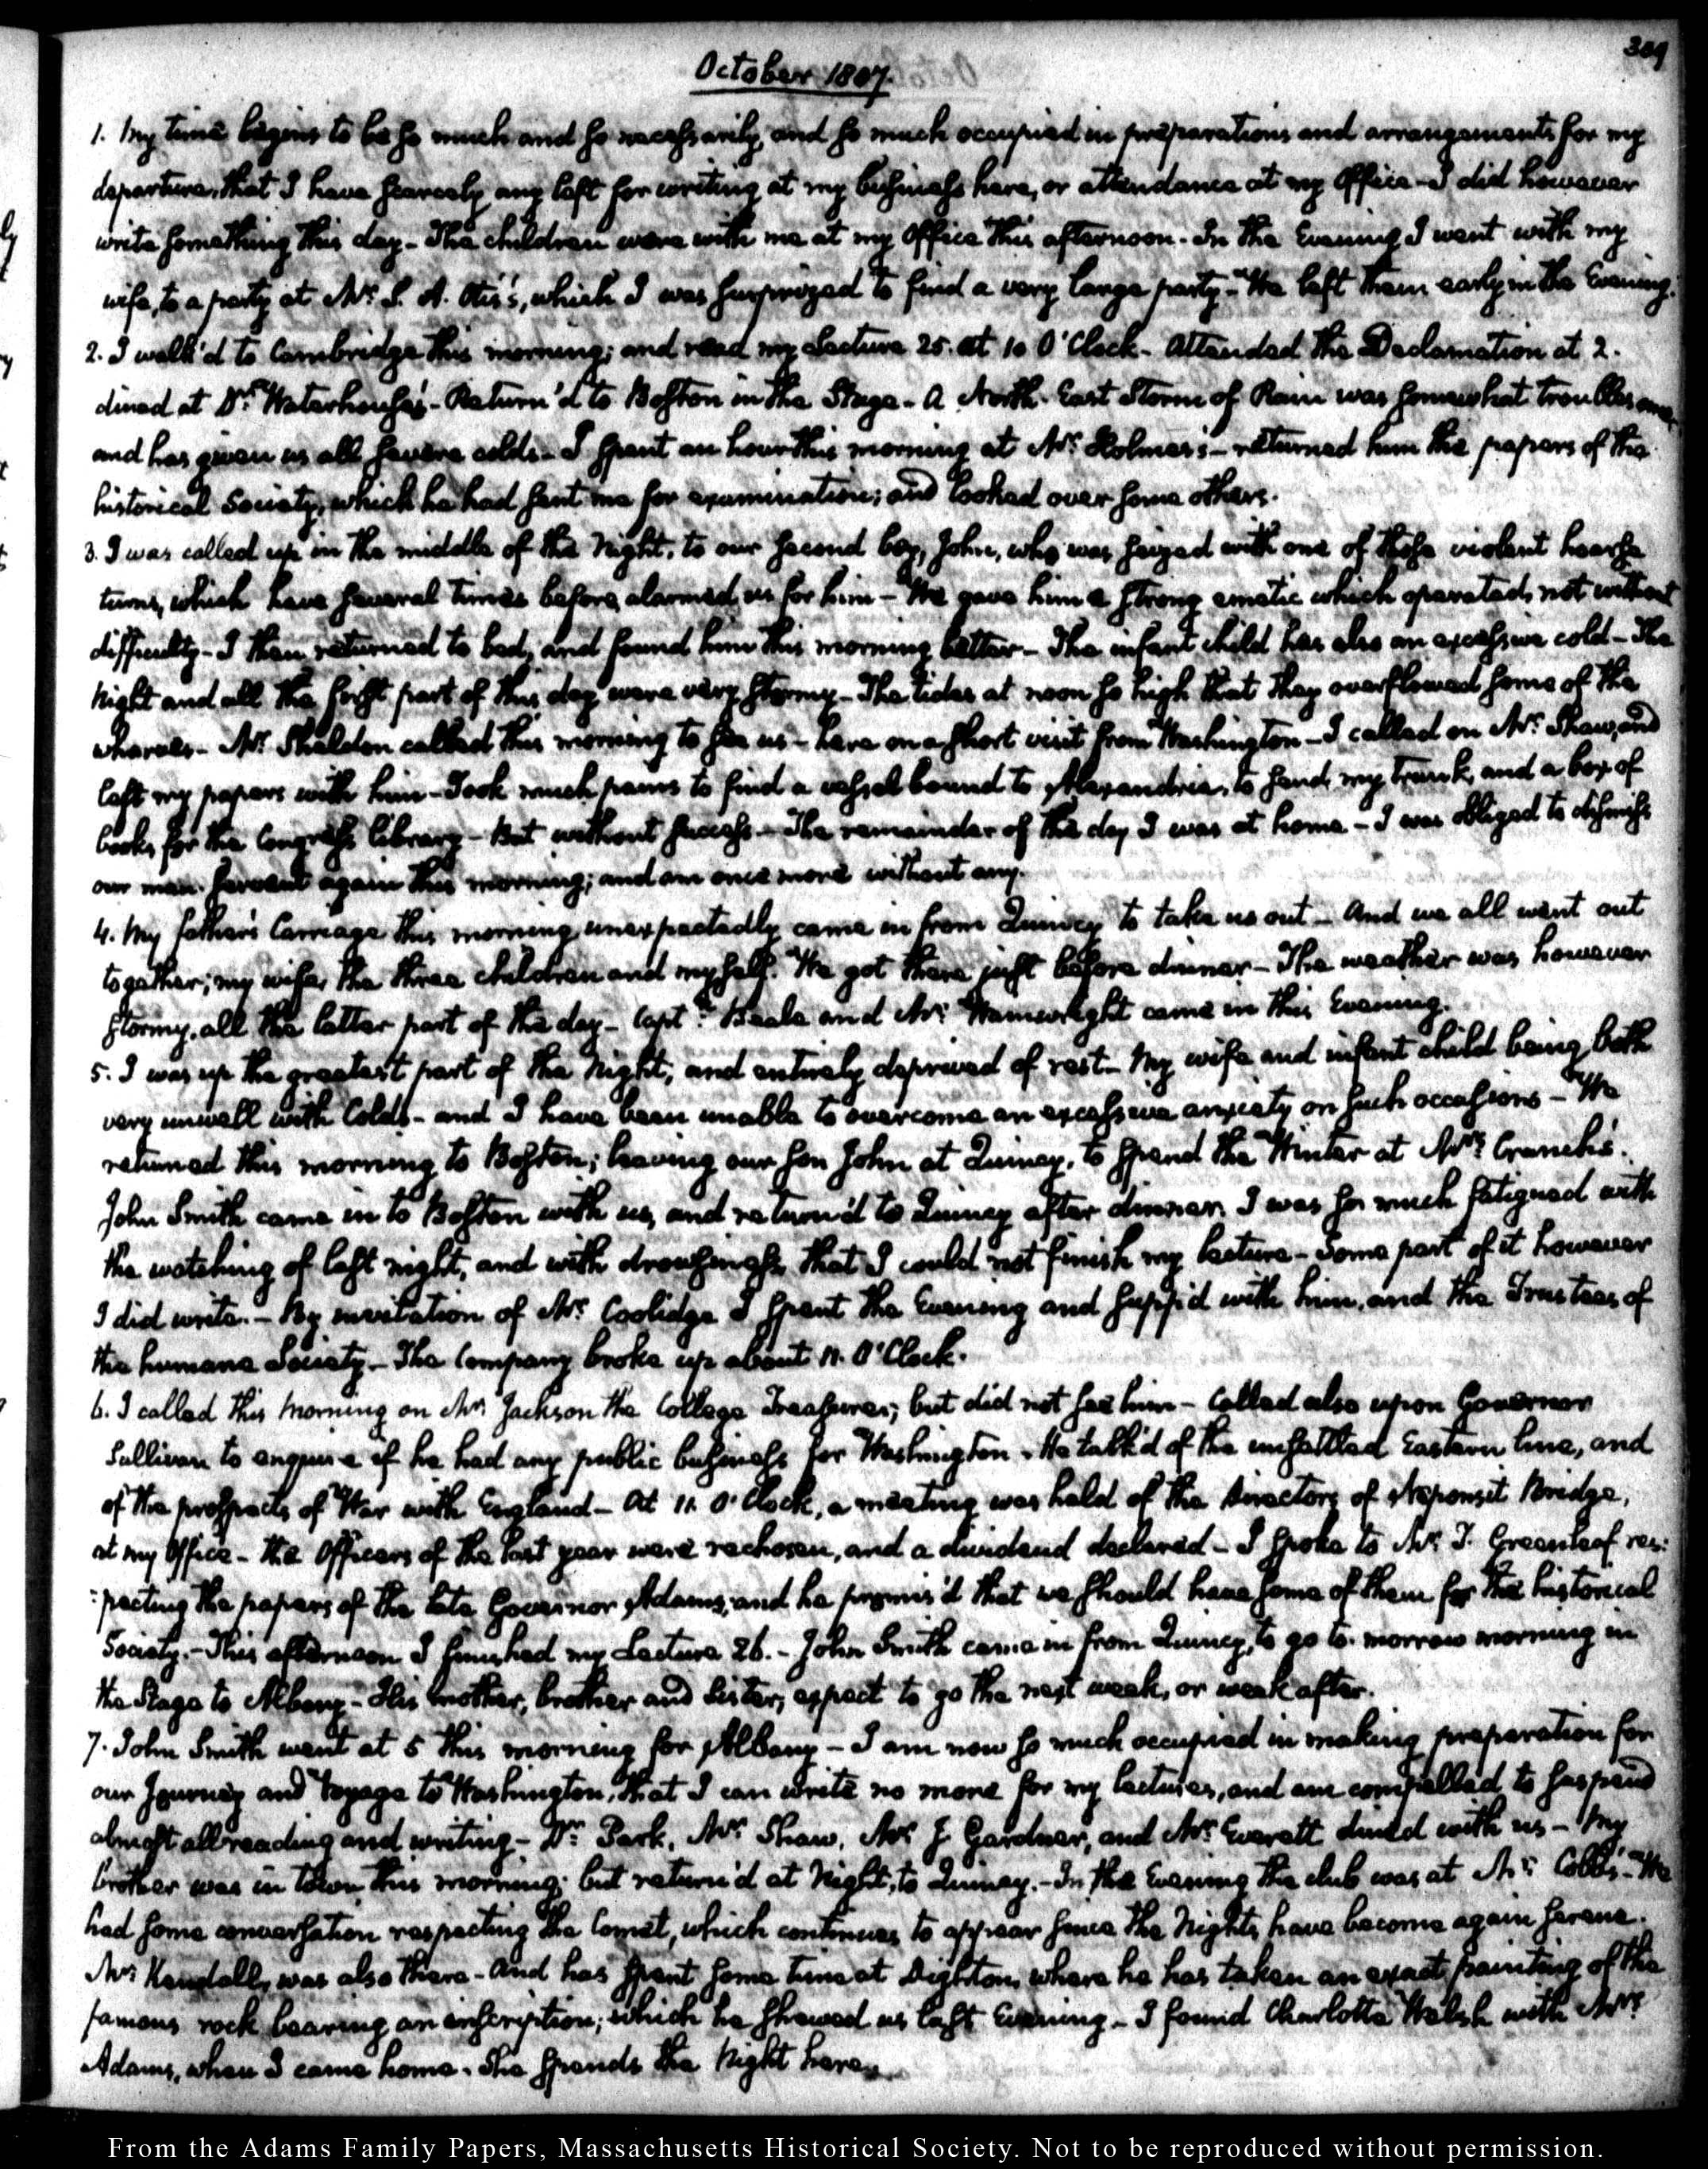 309
October 1807.
1. My time begins to be so much and so necessarily, and so much occupied in preparations and arrangements for my
departure, that I have scarcely any left for writing at my business here, or attendance at my Office - I did however
write something this day - The children were with me at my Office this afternoon. In the Evening I went with my
wife, to a party at Mr. S. A. Otis's, which I was surprized to find a very large party - We left them early in the Evening.
2. I walk'd to Cambridge this morning; and read my Lecture 25. at 10 O'Clock - Attended the Declamation at 2.
dined at Dr. Waterhouse's - Return'd to Boston in the Stage - A North-East Storm of Rain was somewhat troublesome
and has given us all severe colds - I spent an hour this morning at Mr. Holmes's - returned him the papers of the
historical Society, which he had sent me for examination; and looked over some others.
3. I was called up in the middle of the Night, to our second boy, John, who was seized with one of those violent hoarse
turns, which have several times before, alarmed us for him - We gave him a strong emetic which operated, not without
difficulty - I then returned to bed, and found him this morning better - The infant child has also an excessive cold - The
Night and all the first part of this day were very stormy - The tides at noon so high that they overflowed some of the
wharves - Mr. Sheldon called this morning to see us - here on a short visit from Washington - I called on Mr. Shaw, and
left my papers with him - Took much pains to find a vessel bound to Alexandria, to send my trunk, and a box of
books for the Congress library - But without success - The remainder of the day I was at home - I was obliged to dismiss
our man-servant again this morning; and am once more without any.
4. My father's Carriage this morning unexpectedly came in from Quincy to take us out - And we all went out
together; my wife, the three children and myself. We got there just before dinner - The weather was however
stormy, all the latter part of the day - Captn. Beale and Mr. Wainwright came in this Evening.
5. I was up the greatest part of the Night, and entirely deprived of rest - My wife and infant child being both
very unwell with Colds - and I have been unable to overcome an excessive anxiety on such occasions - We
returned this morning to Boston; leaving our son John at Quincy, to spend the Winter at Mrs. Cranch's.
John Smith came in to Boston with us, and return'd to Quincy after dinner. I was so much fatigued with
the watching of last night, and with drowsiness, that I could not finish my lecture - Some part of it however
I did write. - By invitation of Mr. Coolidge I spent the Evening and supp'd with him, and the Trustees of
the humane Society - The Company broke up about 11. O'Clock.
6. I called this Morning on Mr. Jackson the College Treasurer; but did not see him - Called also upon Governor
Sullivan to enquire if he had any public business for Washington. He talk'd of the unsettled Eastern line, and
of the prospects of War with England - At 11. O'Clock, a meeting was held of the Directors of Neponsit Bridge,
at my Office - The Officers of the last year were rechosen, and a dividend declared - I spoke to Mr. T. Greenleaf res:
:pecting the papers of the late Governor Adams; and he promis'd that we should have some of them for the historical
Society. - This afternoon I finished my Lecture 26. - John Smith came in from Quincy, to go to-morrow morning in
the Stage to Albany - His mother, brother and Sister, expect to go the next week, or week after.
7. John Smith went at 5 this morning for Albany - I am now so much occupied in making preparation for
our Journey and Voyage to Washington, that I can write no more for my lectures, and am compelled to suspend
almost all reading and writing - Dr. Park, Mr. Shaw, Mr. J. Gardner, and Mr. Everett dined with us - My
brother was in town this morning; but return'd at Night, to Quincy. - In the Evening the club was at Mr. Cobb's - We
had some conversation respecting the Comet, which continues to appear since the Nights have become again serene.
Mr. Kendall, was also there - And has spent some time at Dighton, where he has taken an exact painting of the
famous rock bearing an inscription; which he shewed us last Evening - I found Charlotte Welsh with Mrs.
Adams, when I came home. She spends the Night here.
From the Adams Family Papers, Massachusetts Historical Society. Not to be reproduced without permission.